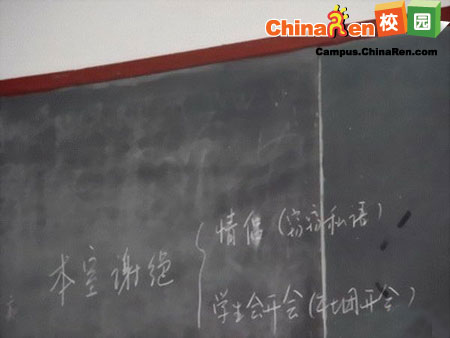 ChinaRen 校园
Campus.ChinaRen.com
情侣(窃窃私语)
本室谢绝
学生会开会(社团开会)